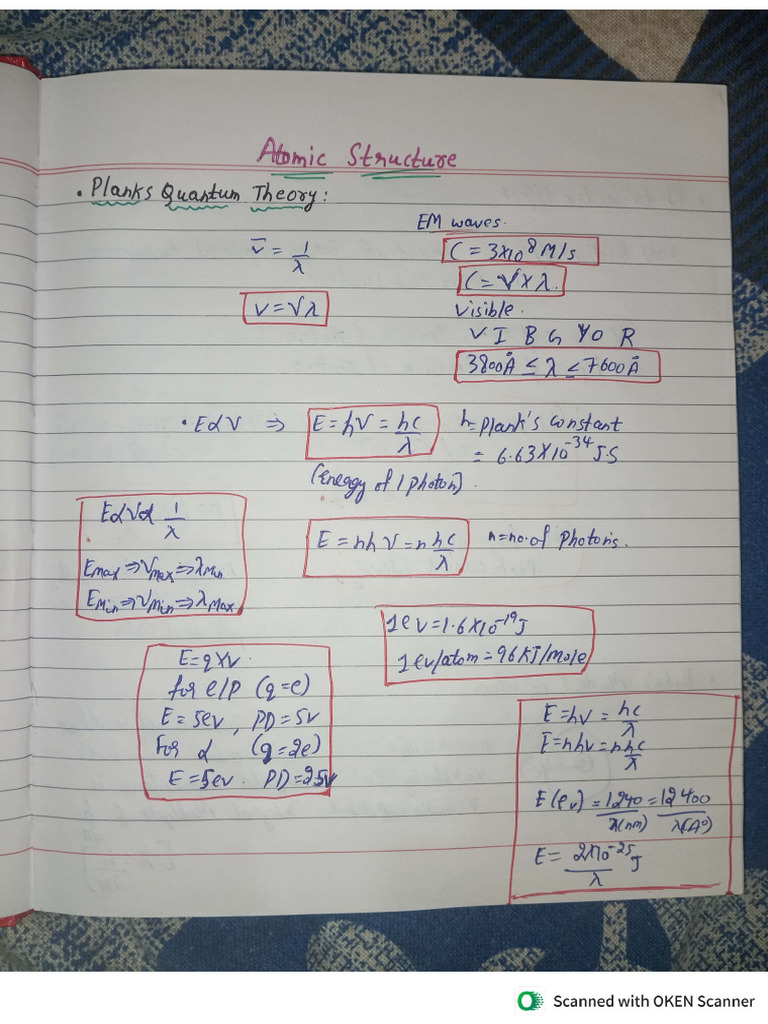 Atomic Structure
• Planks Quantum Theory:
EM waves.
v̅ = 1/λ
C = 3×10⁸ M/s
C = √×λ.
v = √λ
Visible.
V I B G Y O R
3800Å ≤ λ ≤ 7600Å
• E∝V ⇒ E = hV = hc/λ
h = Plank's constant
= 6.63×10⁻³⁴ J.S
(Energy of 1 photon).
E∝V∝ 1/λ
Emax ⇒ νmax ⇒ λMin
EMin ⇒ νMin ⇒ λMax
E = nhV = n hc/λ
n = no. of Photons.
1ev = 1.6×10⁻¹⁹J
1ev/atom = 96KJ/mole
E = q×v.
for e/P (q=e)
E = 5ev, PD = 5v
For α (q=2e)
E = 5ev. PD = 2.5v
E = hν = hc/λ
E = nhν = nhc/λ
E(ev) = 1240/λ(nm) = 12400/λ(A°)
E = 2×10⁻²⁵/λ J
Scanned with OKEN Scanner